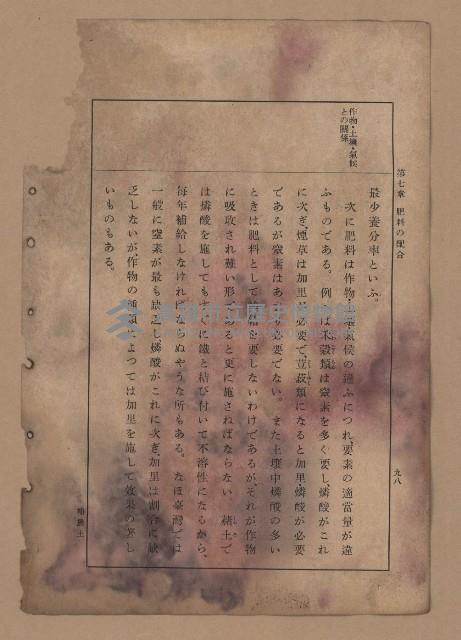 第七章 肥料の配合
九八
作物・土壤・氣候
との關係
最少養分率といふ。
次に肥料は作物・土壤・氣候の違ふにつれ、要素の適當量が違
ふものである。例へば禾穀類は窒素を多く要し、燐酸がこれ
に次ぎ、煙草は加里が必要で、荳菽類になると加里・燐酸が必要
であるが窒素はあまり必要でない。また土壤中燐酸の多い
ときは肥料として補給を要しないわけであるが、それが作物
に吸收され難い形であると更に施さねばならない。赭土で
は燐酸を施しても土中の鐵と結び付いて不溶性になるから、
每年補給しなければならぬやうな所もある。なほ臺灣では
一般に窒素が最も缺乏し、燐酸がこれに次ぎ、加里は割合に缺
乏しないが、作物の種類によつては加里を施して效果の著し
いものもある。
高雄市立歷史博物館